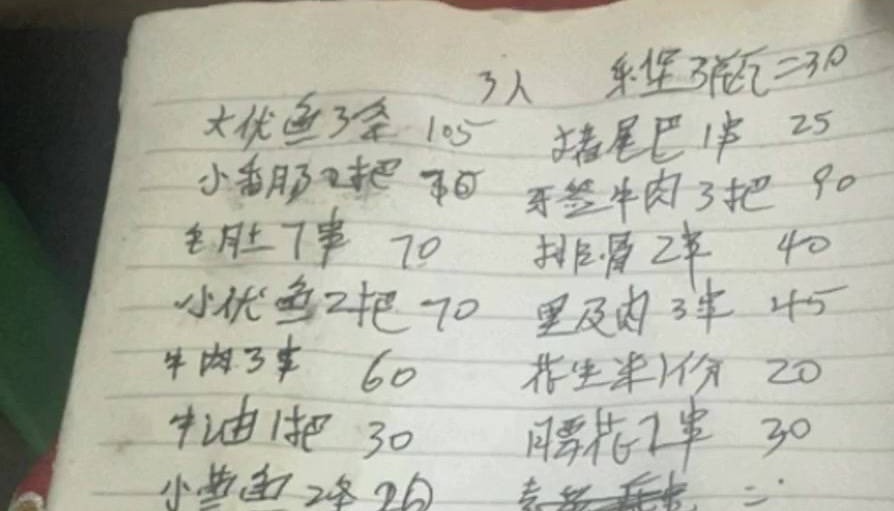 3人 乐堡3瓶=30
大优鱼3条 105 猪尾巴1串 25
小香肠2把 牙签牛肉3把 90
毛肚7串 70 排骨2串 40
小优鱼2把 70 里及肉3串 45
牛肉3串 60 花生米1份 20
牛油1把 30 腰花2串 30
小黄鱼2条